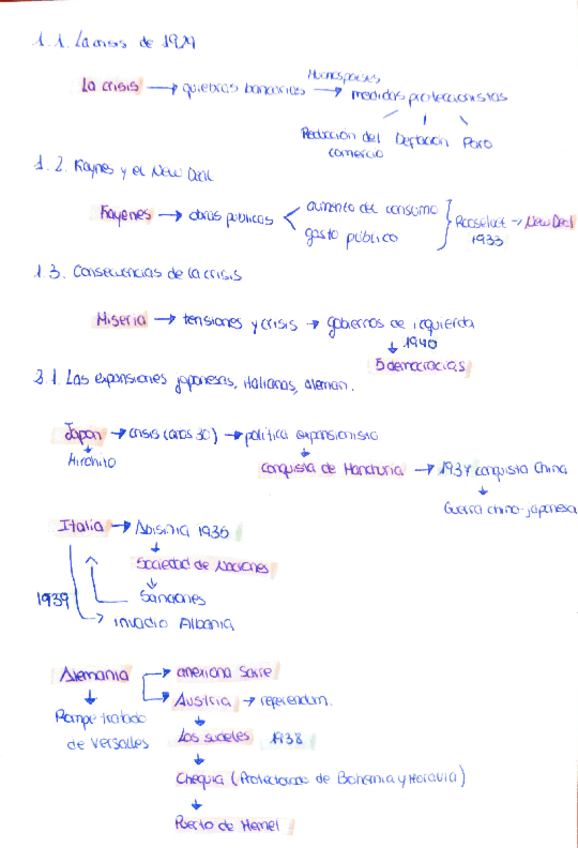 1.1. La crisis de 1929
La crisis → quiebras bancarias → medidas proteccionistas
Reducción del Deflación Paro
comercio
1.2. Kaynes y el New Deal
Kayenes → obras públicas aumento del consumo
gasto público
Rooselvet → New Deal
1933
1.3. Consecuencias de la crisis
Miseria → tensiones y crisis → gobiernos de izquierda
↓ 1940
5 democracias
3.1. Las expansiones japonesas, italianas, aleman.
Japon → crisis (años 30) → política expansionista
Hirohito
conquista de Manchuria → 1937 conquista China
Guerra chino-japonesa
Italia → Abisinia 1935
Sociedad de Naciones
1939 Sanciones
invadio Albania
Alemania → anexiona Sarre
Austria → referendum.
Rompe tratado
de Versalles
Los sudetes 1938
Chequia (Protectorado de Bohemia y Moravia)
Puerto de Memel